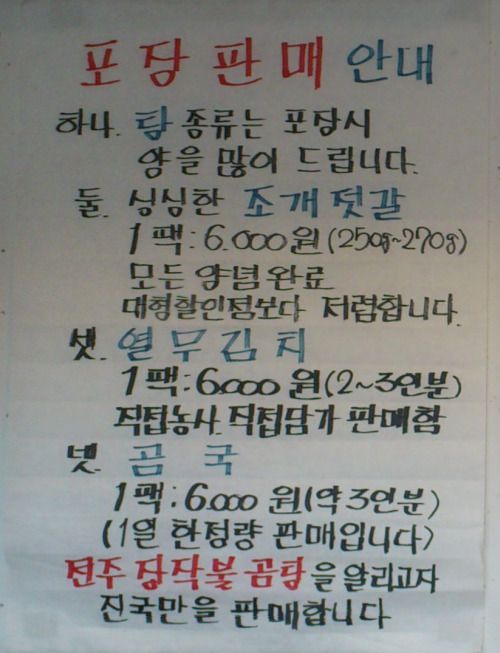 포장 판매 안내
하나. 탕 종류는 포장시
양을 많이 드립니다.
둘. 싱싱한 조개젓갈
1팩: 6.000원(250g~270g)
모든 양념완료
대형할인점보다 저렴합니다.
셋. 열무김치
1팩: 6.000원(2~3인분)
직접농사. 직접담가 판매함
넷. 곰국
1팩: 6.000원(약3인분)
(1일 한정량 판매입니다)
전주 장작불곰탕을 알리고자
진국만을 판매합니다